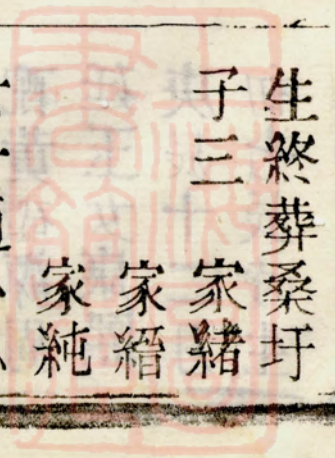 生終葬桑圩
子三　家緒
家縉
家純